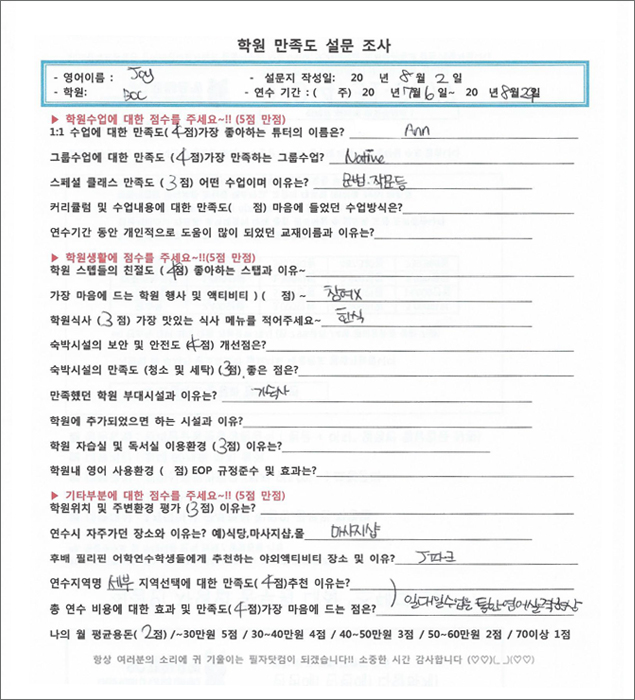 학원 만족도 설문 조사
- 영어이름 : Joy - 설문지 작성일: 20 년 8월 2일
- 학원: BOC - 연수 기간 : ( 주) 20 년 7월 6일~ 20 년 8월 29일
▶ 학원수업에 대한 점수를 주세요~!! (5점 만점)
1:1 수업에 대한 만족도(4점)가장 좋아하는 튜터의 이름은? Ann
그룹수업에 대한 만족도(4점)가장 만족하는 그룹수업? Native
스페셜 클래스 만족도 (3점) 어떤 수업이며 이유는? 문법.작문등
커리큘럼 및 수업내용에 대한 만족도( 점) 마음에 들었던 수업방식은?
연수기간 동안 개인적으로 도움이 많이 되었던 교재이름과 이유는?
▶ 학원생활에 점수를 주세요~!!(5점 만점)
학원 스텝들의 친절도 (4점) 좋아하는 스텝과 이유~
가장 마음에 드는 학원 행사 및 액티비티 ) ( 점) ~ 참여X
학원식사 (3 점) 가장 맛있는 식사 메뉴를 적어주세요~ 한식
숙박시설의 보안 및 안전도 (4점) 개선점은?
숙박시설의 만족도 (청소 및 세탁) (3점) 좋은 점은?
만족했던 학원 부대시설과 이유는? 기숙사
학원에 추가되었으면 하는 시설과 이유?
학원 자습실 및 독서실 이용환경 (3점) 이유는?
학원내 영어 사용환경 ( 점) EOP 규정준수 및 효과는?
▶ 기타부분에 대한 점수를 주세요~!! (5점 만점)
학원위치 및 주변환경 평가 (3점) 이유는?
연수시 자주가던 장소와 이유는? 예)식당,마사지샵,몰 마사지샵
후배 필리핀 어학연수학생들에게 추천하는 야외액티비티 장소 및 이유? J파크
연수지역명 세부 지역선택에 대한 만족도(4점)추천 이유는?
총 연수 비용에 대한 효과 및 만족도(4점)가장 마음에 드는 점은? ) 일대일수업을 통한 영어실력향상
나의 월 평균용돈(2점) /~30만원 5점 / 30~40만원 4점 / 40~50만원 3점 / 50~60만원 2점 / 70이상 1점
항상 여러분의 소리에 귀 기울이는 필자닷컴이 되겠습니다!! 소중한 시간 감사합니다 (♡♡)(_ _)(♡♡)